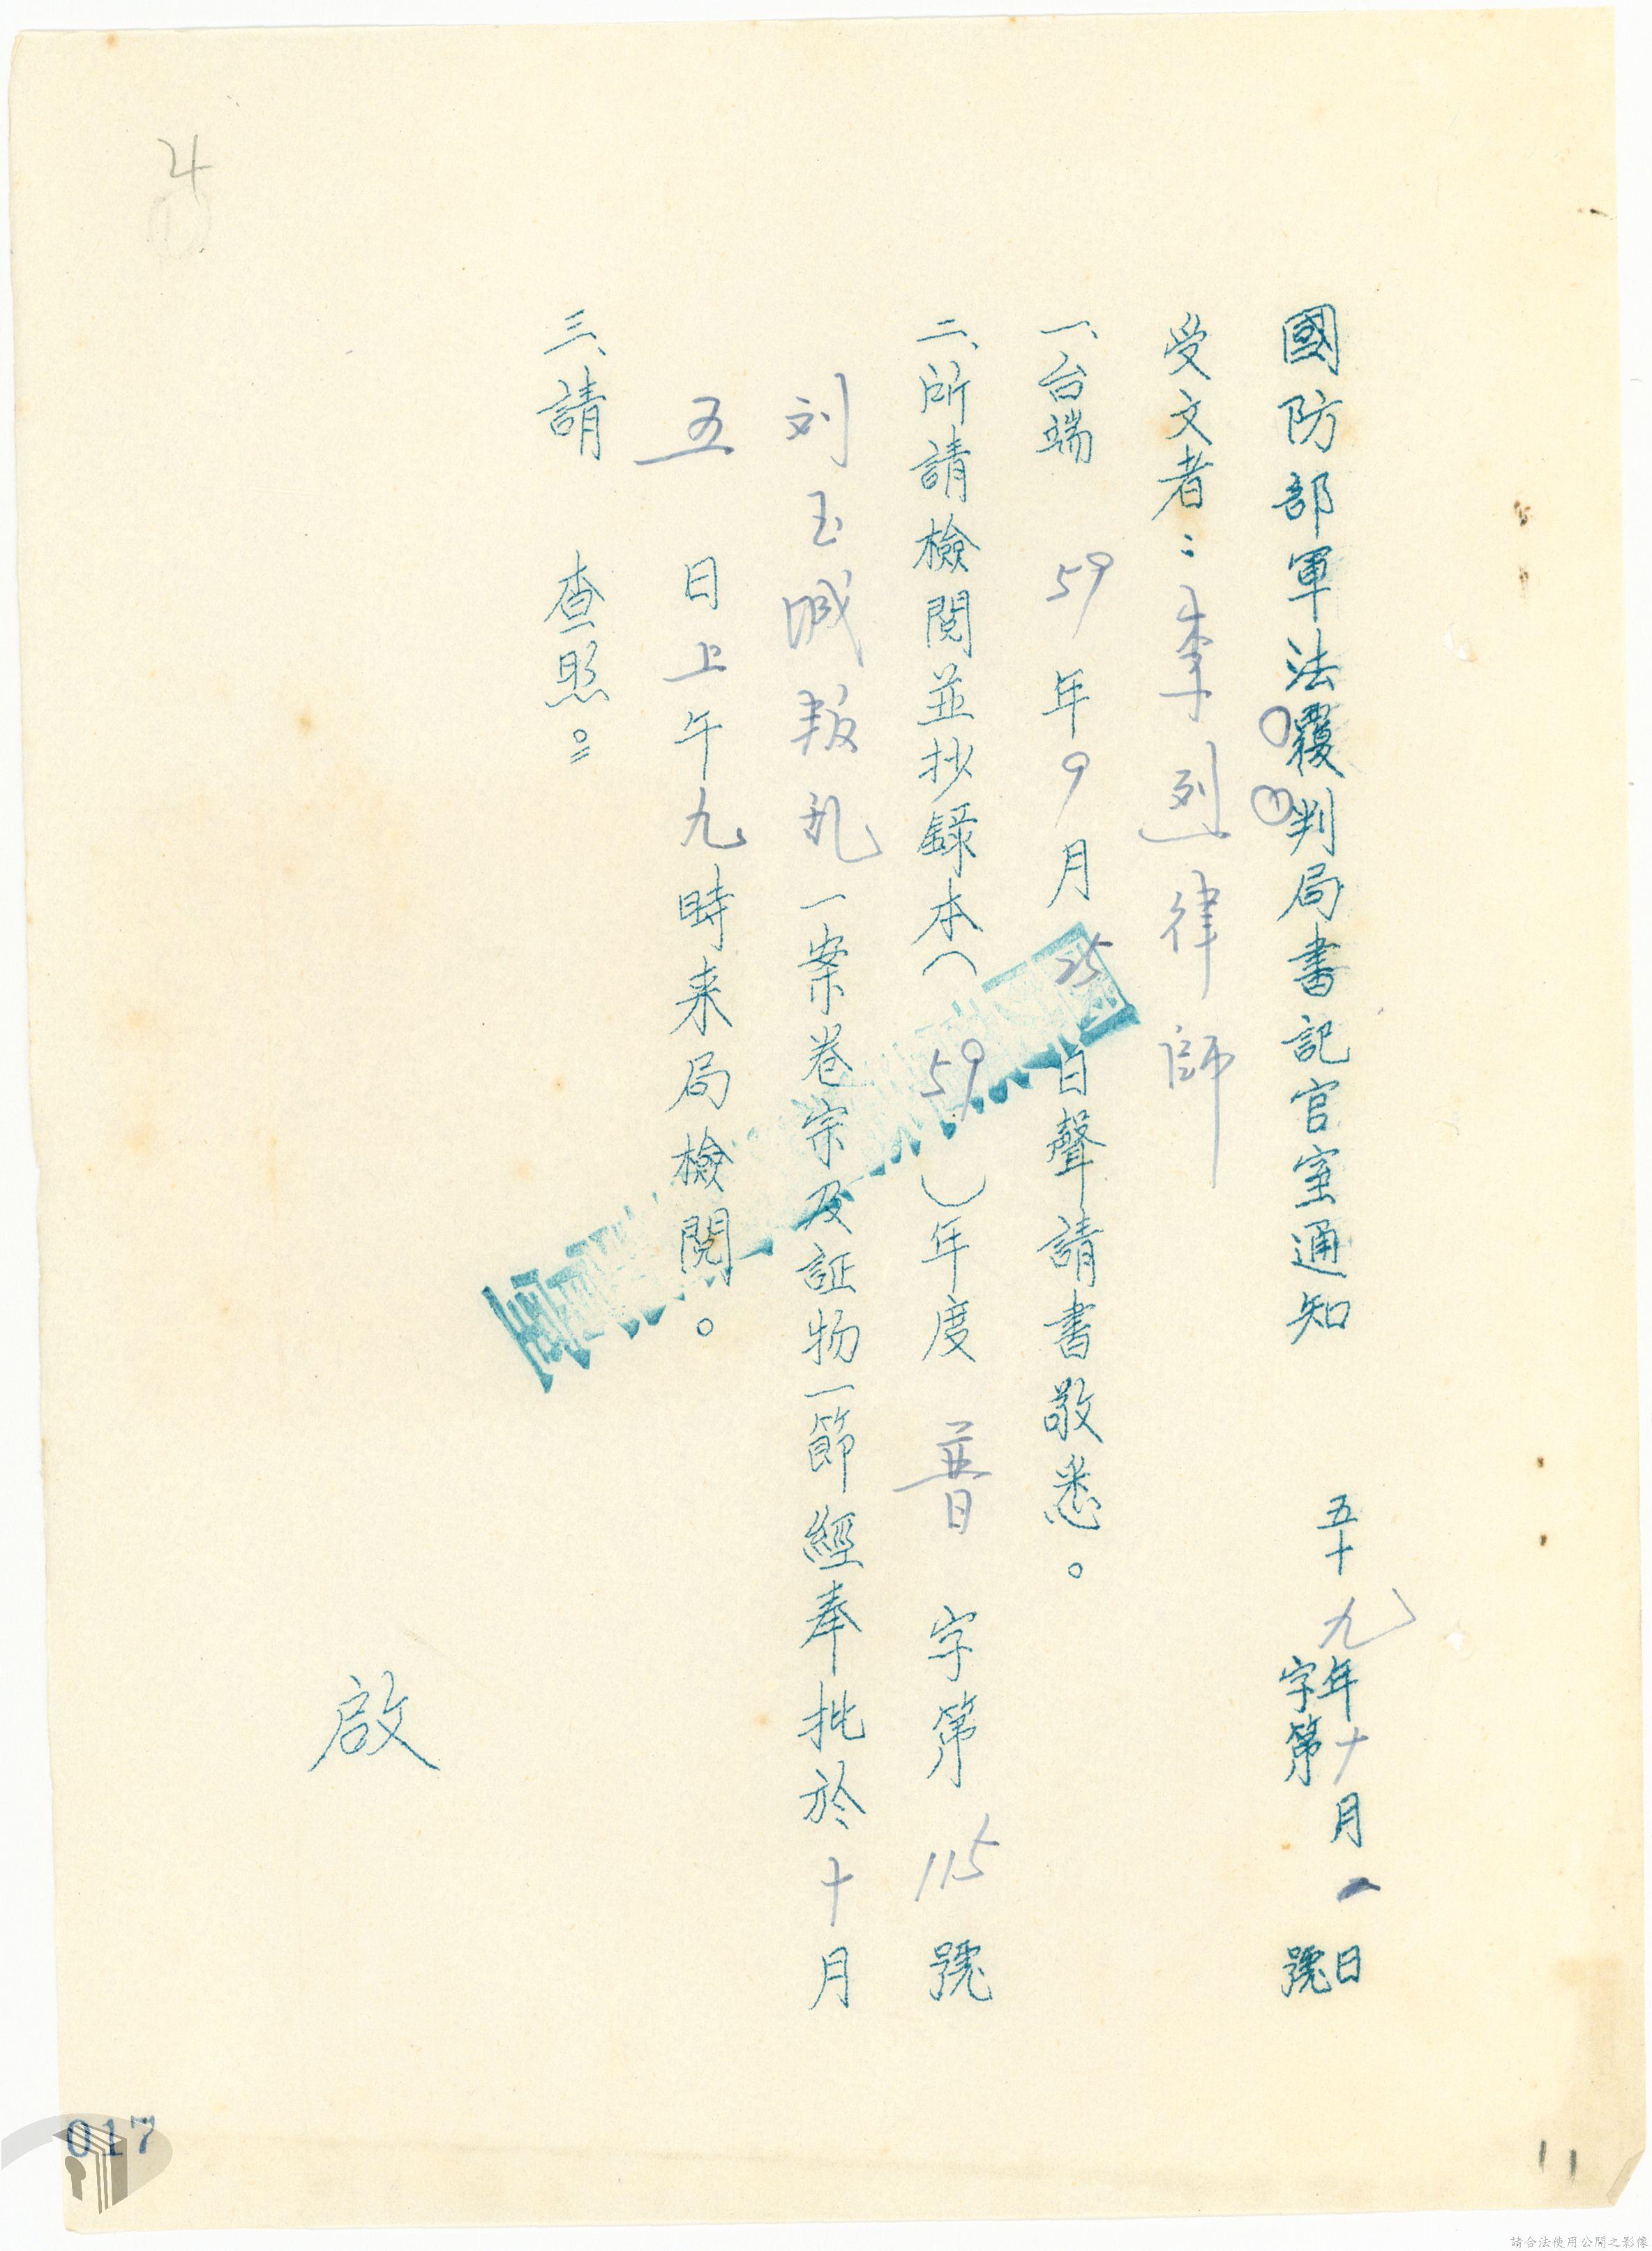 國防部軍法覆判局書記官室通知
五十九年十月一日
字第 號
受文者：李 列 律師
一、台端 59 年 9 月 25 日聲請書敬悉。
二、所請檢閱並抄錄本（ 59 ）年度 普 字第 115 號
刘玉 叛乱一案卷宗及証物一節經奉批於十月
五 日上午九時来局檢閱。
三、請 查照。
啟
4
017
11
請合法使用公開之影像